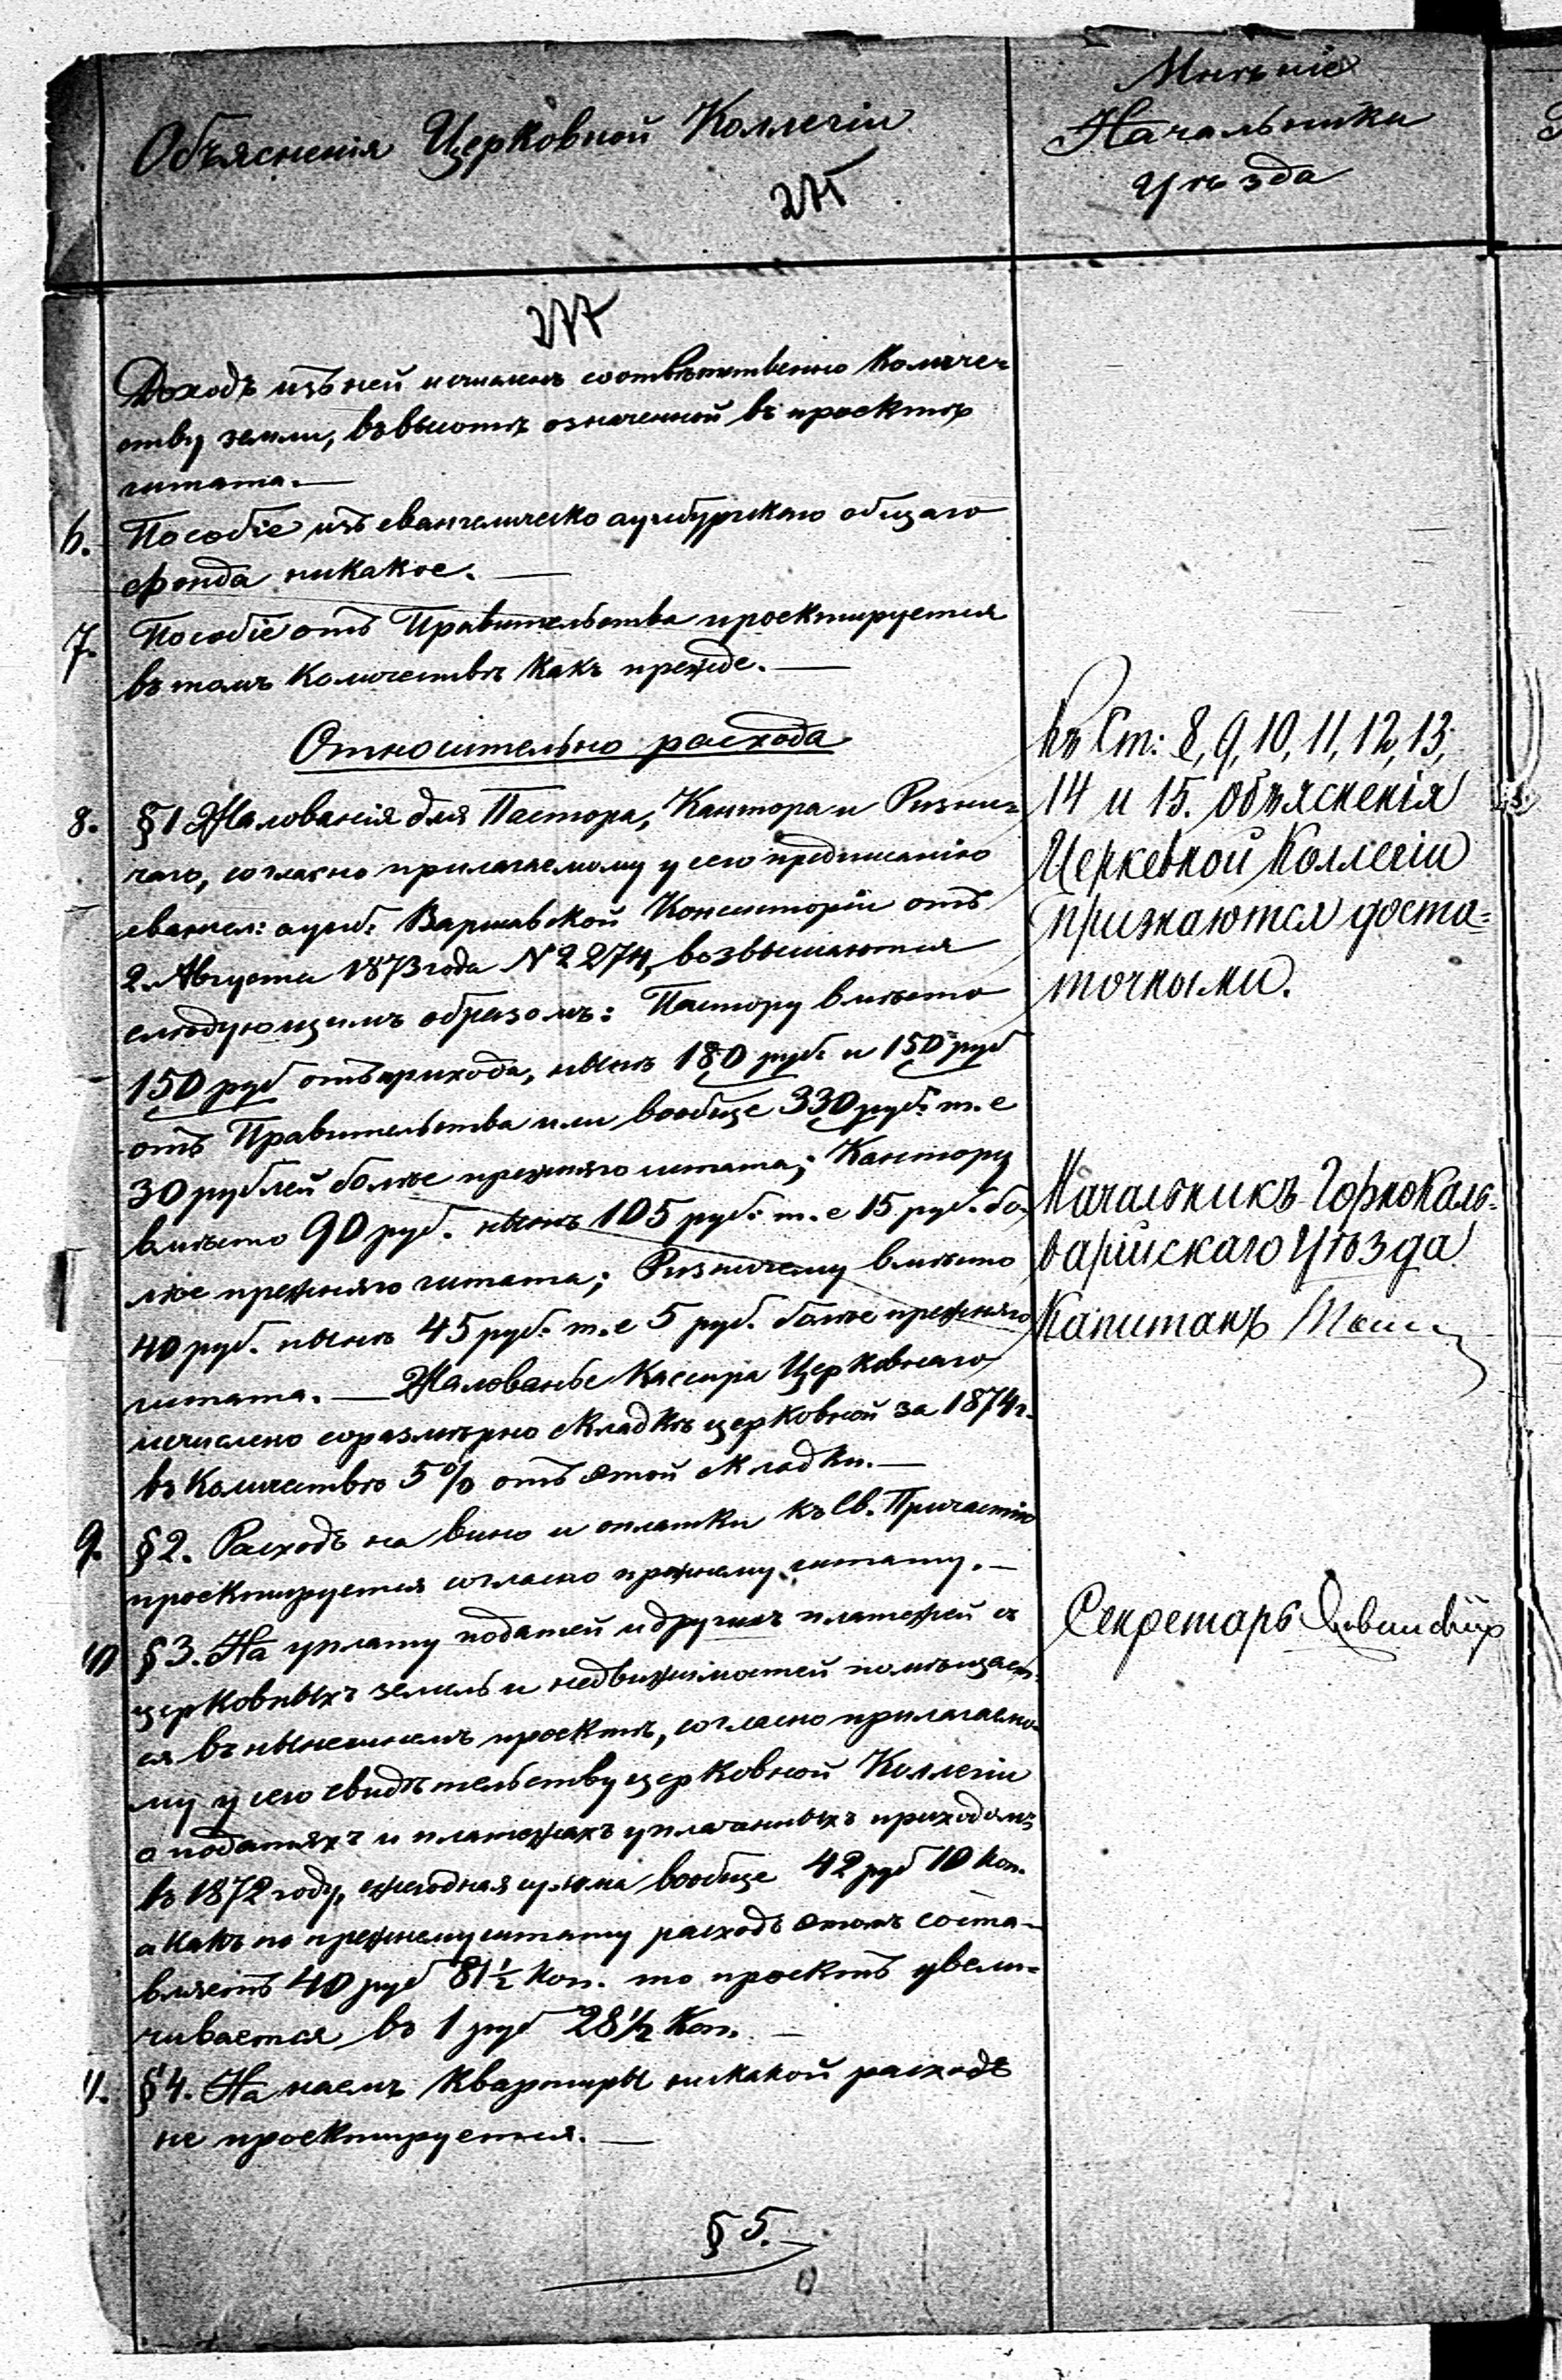 Объясненія Церковной Коллегіи
275
277
Доходъ изъ ней исчисленъ соотвѣтственно количе-
ству земли, въ высотѣ означенной въ проектѣ
штата.—
6. Пособіе изъ евангелическо аугсбургскаго общаго
фонда никакое.—
7. Пособіе отъ Правительства проектируется
въ томъ количествѣ какъ прежде.—
Относительно расхода
8. §1 Жалованія для Пастора, Кантора и Ризни-
чаго, согласно прилагаемому у сего предписанію
евангел: аугсб: Варшавской Консисторіи отъ
2. Августа 1873 года N 2274, возвышаются
слюдующимъ образомъ: Пастору вмѣсто
150 руб отъ прихода, нынѣ 180 руб: и 150 руб
отъ Правительства или вообще 330 руб: т. е
30 рублей болѣе прежняго штата; Кантору
вмѣсто 90 руб. нынѣ 105 руб: т. е 15 руб. бо-
лѣе прежняго штата; Ризничему вмѣсто
40 руб. нынѣ 45 руб: т. е 5 руб. болѣе прежняго
штата.— Жалованье Кассира Церковнаго
исчислено соразмѣрно складкѣ церковной за 1874 г.
въ количествѣ 5% отъ этой складки.—
9. §2. Расходъ на вино и оплатки къ Св. Причастію
проектируется согласно прежнему штату.—
10 §3. На уплату податей и другихъ платежей съ
церковныхъ земель и недвижимостей помѣщает-
ся въ нынешнемъ проектѣ, согласно прилагаемо-
му у сего свидѣтельству церковной Коллегіи
о податяхъ и платежахъ уплаченныхъ приходомъ
въ 1872 году, ежегодная сумма вообще 42 руб 10 коп.
а какъ по прежнему штату расходъ этотъ соста-
вляетъ 40 руб 81½ коп. то проектъ увели-
чивается въ 1 руб 28½ Коп.—
11. §4. На наемъ квартиры никакой расходъ
не проектируется.—
§5.
Мнѣніе
Начальника
Уѣзда
Къ Ст: 8, 9, 10, 11, 12, 13,
14 и 15. объясненія
Церковной Коллегіи
признаются доста-
точными.
Начальникъ Горнокаль-
варійскаго Уѣзда
Капитанъ
Секретарь